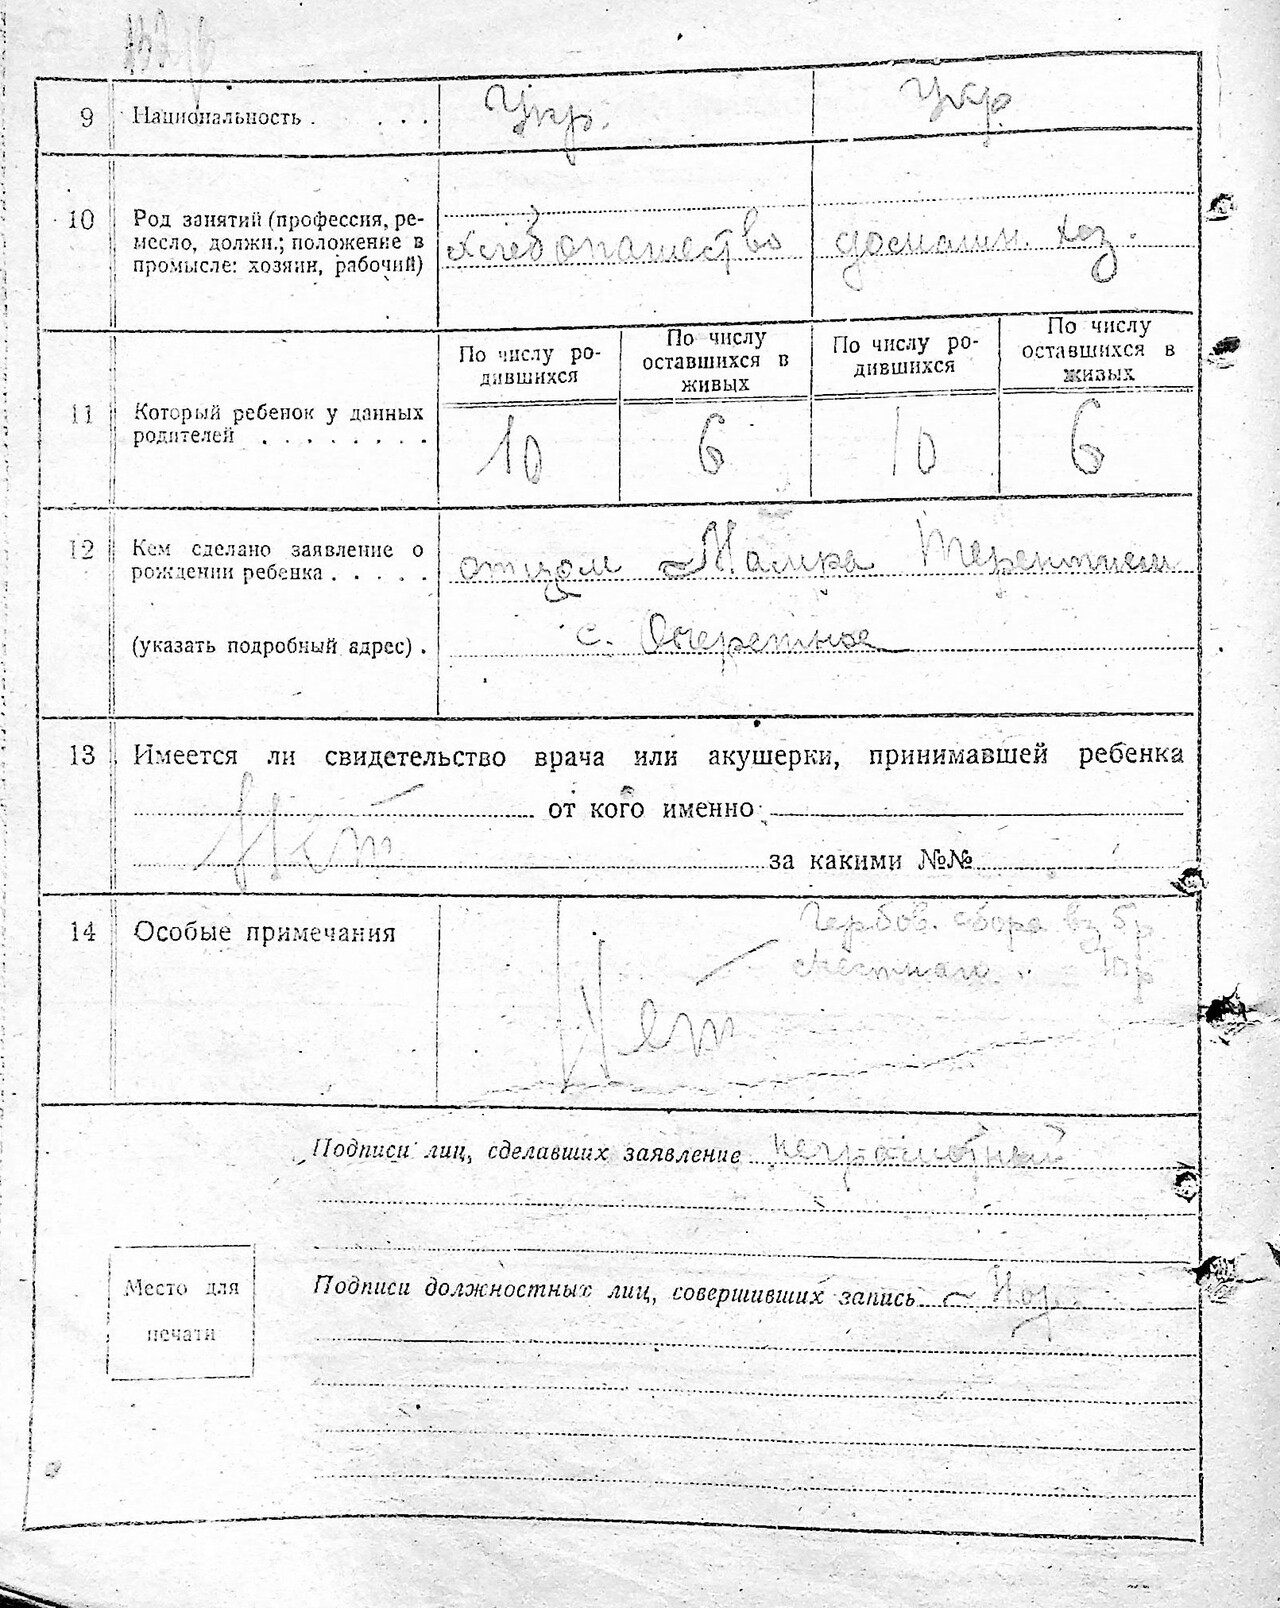 9 Национальность . . . . Укр. Укр
10 Род занятий (профессия, ре-
месло, должн.; положение в
промысле: хозяин, рабочий)
хлебопашество домашн. хоз.
По числу ро-
дившихся
По числу
оставшихся в
живых
По числу ро-
дившихся
По числу
оставшихся в
живых
11 Который ребенок у данных
родителей . . . . . . . .
10 6 10 6
12 Кем сделано заявление о
рождении ребенка . . . . .
отцом Мамка Терентием
(указать подробный адрес) .
с. Очеретное
13 Имеется ли свидетельство врача или акушерки, принимавшей ребенка
от кого именно
Нет за какими №№
14 Особые примечания
Гербов. сбора вз 5р
местного " 10р
Нет
Подписи лиц, сделавших заявление неграмотный
Место для
печати
Подписи должностных лиц, совершивших запись